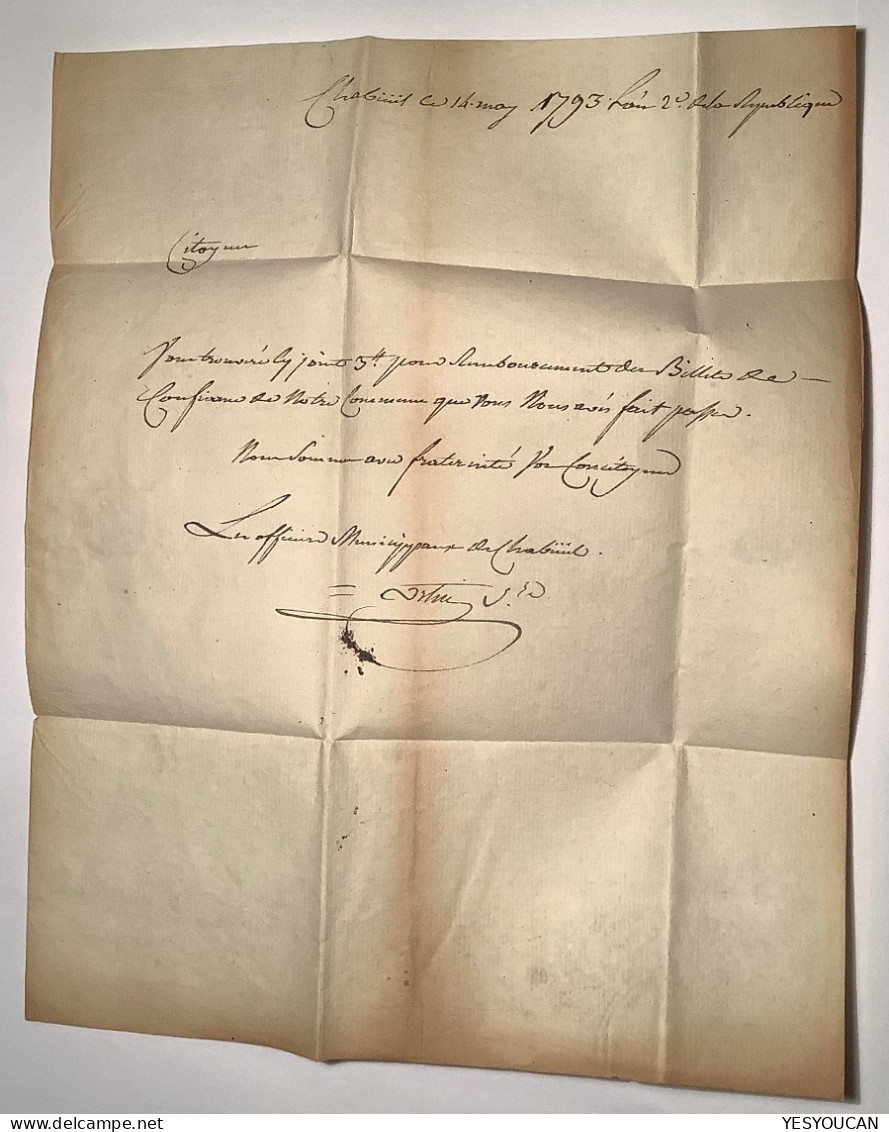 Chabüil ce 14. may 1793. l'an 2e. de la Republique
Citoyens
Vous trouveré cy joint 3lt pour Rembourcement des Billets de
Confiance de Notre Commune que Vous Nous avés fait passer.
Nous Sommes avec fraternité Vos Concitoyens
Les officiers Municippaux de Chabüil.
YESYOUCAN